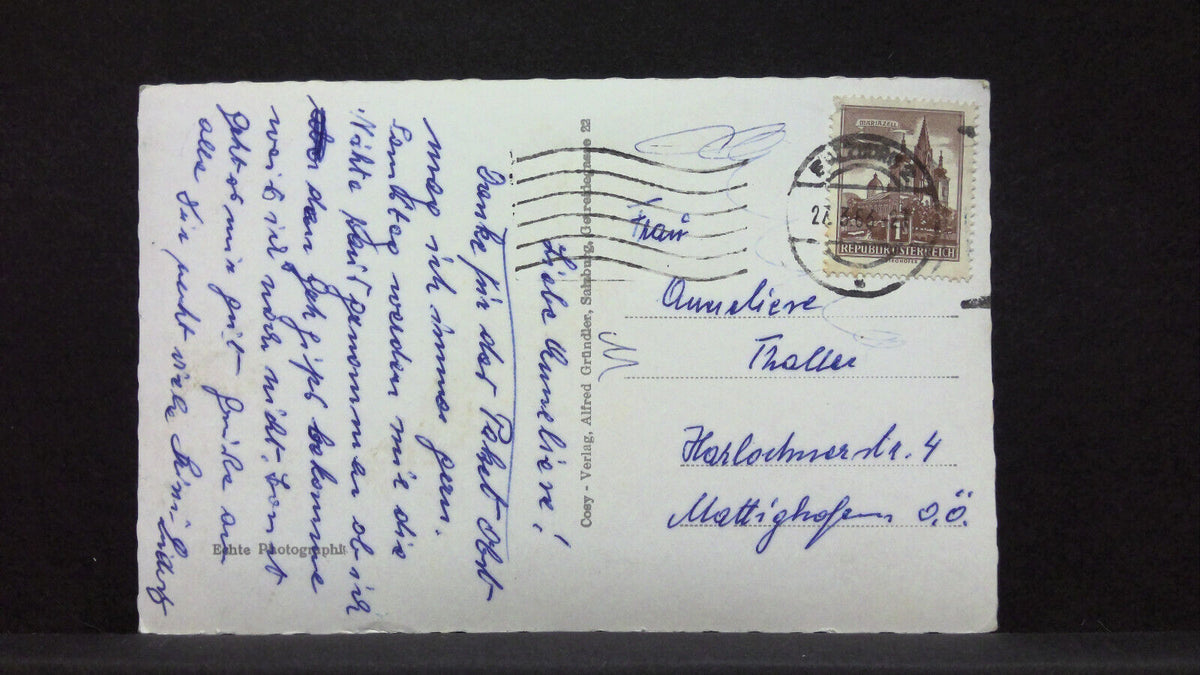 Liebe Anneliese!
Danke für das Paket Obst
mag ich immer gern.
Samstag werden mir die
Nähte genommen ob ich
dan Gehgips bekomme
weis ich noch nicht. Sonst
geht es mir gut Grüße an
alle Dir recht viele
Echte Photographie
Cosy - Verlag, Alfred Gründler, Salzburg, Getreidegasse 22
MARIAZELL
1
REPUBLIK ÖSTERREICH
Frau
Anneliese
Thaller
Harlochnerstr. 4
Mattighofen O.Ö.